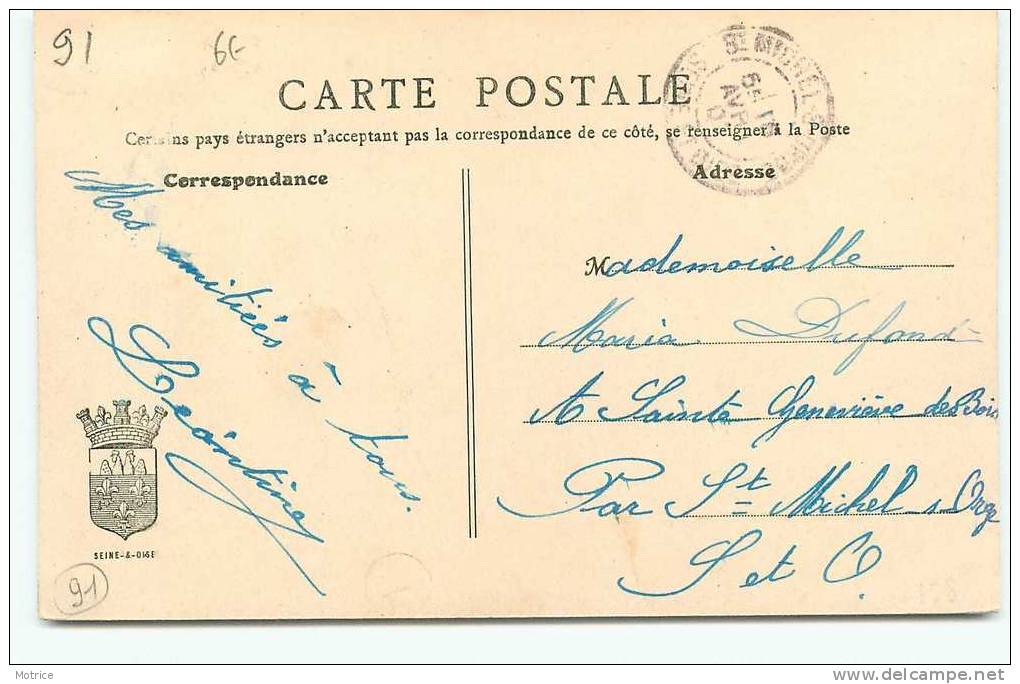 91
6E
CARTE POSTALE
Certains pays étrangers n'acceptant pas la correspondance de ce côté, se renseigner à la Poste
Correspondance
Mes amitiés à tous.
Léontine
SEINE-&-OISE
91
Adresse
Mademoiselle
Maria Dufond
A Sainte Geneviève des Bois
Par St Michel s Orge
S et O
Motrice
delcampe.net